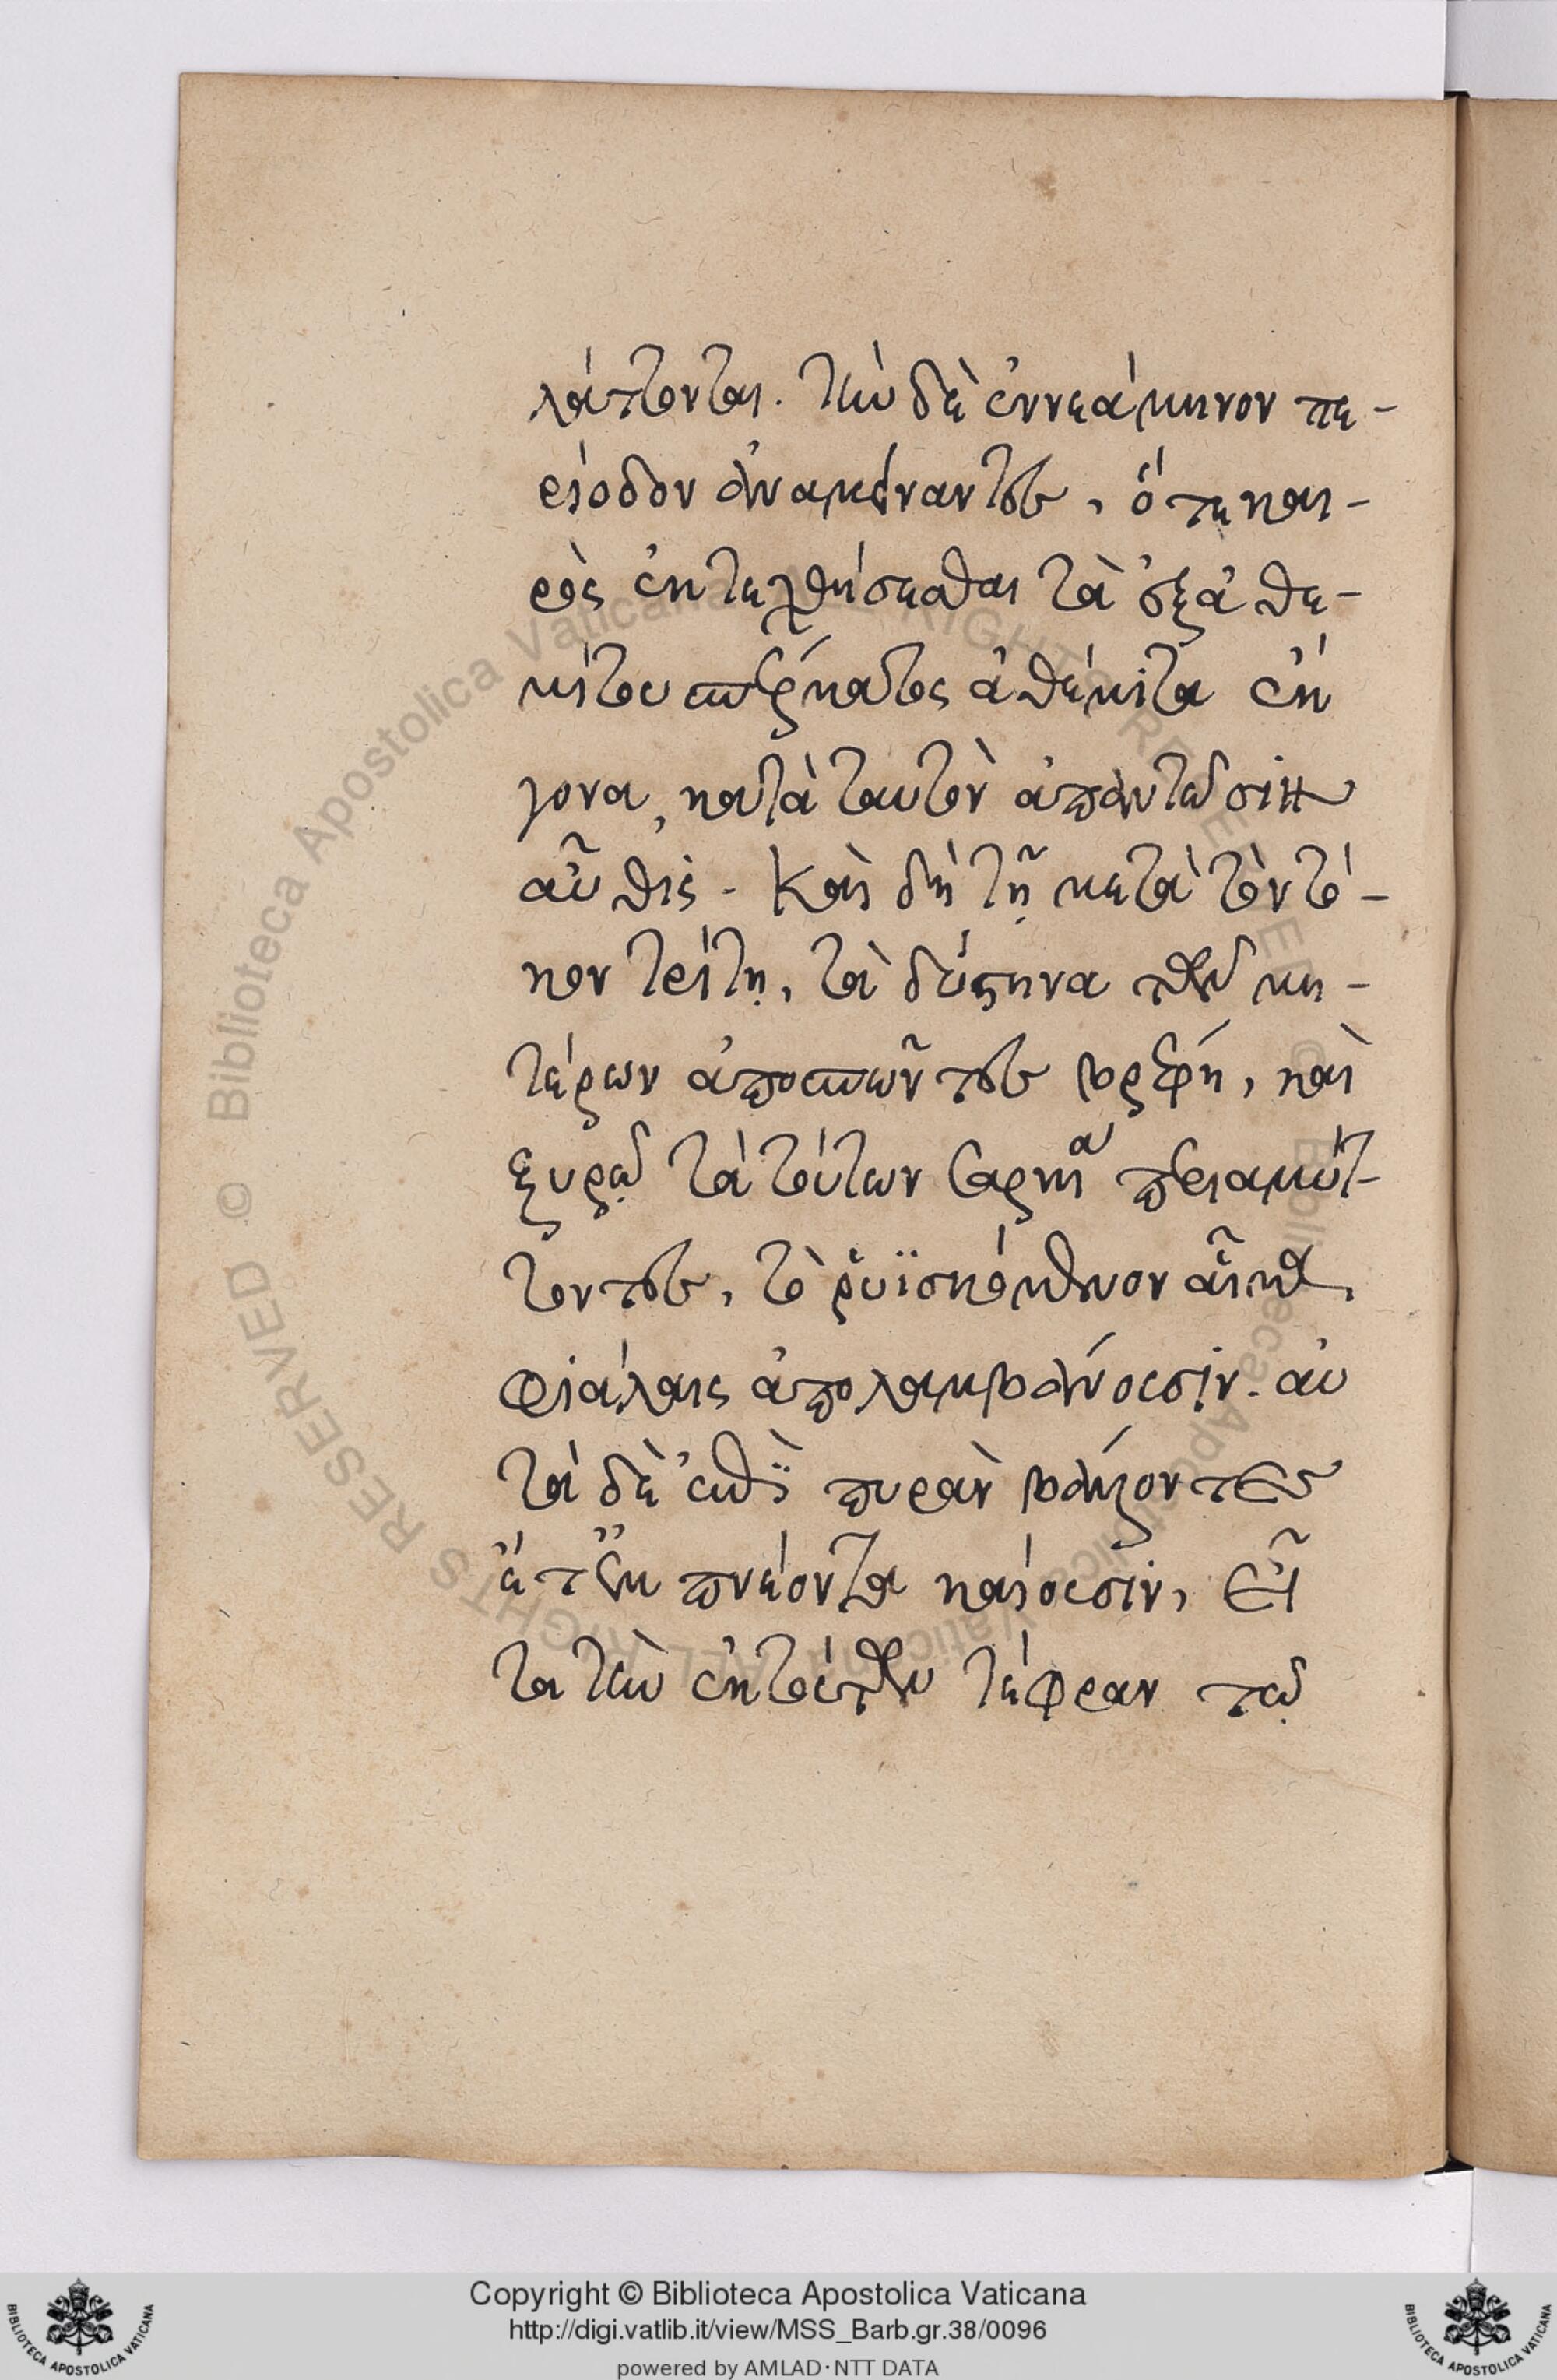 λάττονται. τὴν δὲ ἐννεάμηνον πε-
ρίοδον ἀναμείναντες, ὅτε και-
ρὸς ἐκτεχθήσεσθαι τὰ ἐξ ἀθε-
μίτου σπέρματος ἀθέμιτα ἔκ
γονα, κατὰ ταυτὸν ἀπαντῶσιν
αὖθις. Καὶ δὴ τῇ μετὰ τὸν τό-
κον τρίτῃ, τὰ δύστηνα τῶν μη-
τέρων ἀποσπῶντες βρέφη, καὶ
ξυρῷ τὰ τούτων σαρκία περιαμύτ-
τοντες, τὸ ῥυϊσκόμενον αἷμα
φιάλαις ἀπολαμβάνουσιν. αὐ
τὰ δὲ ἐπὶ πυρὰν βάζοντες
ἔτ' ἐμπνέοντα καίουσιν, εἶ
τα τὴν ἐκ τούτων τέφραν τῷ
Copyright © Biblioteca Apostolica Vaticana
http://digi.vatlib.it/view/MSS_Barb.gr.38/0096
powered by AMLAD·NTT DATA
BIBLIOTECA APOSTOLICA VATICANA
BIBLIOTECA APOSTOLICA VATICANA
© Biblioteca Apostolica Vaticana ALL RIGHTS RESERVED
© Biblioteca Apostolica Vaticana ALL RIGHTS RESERVED